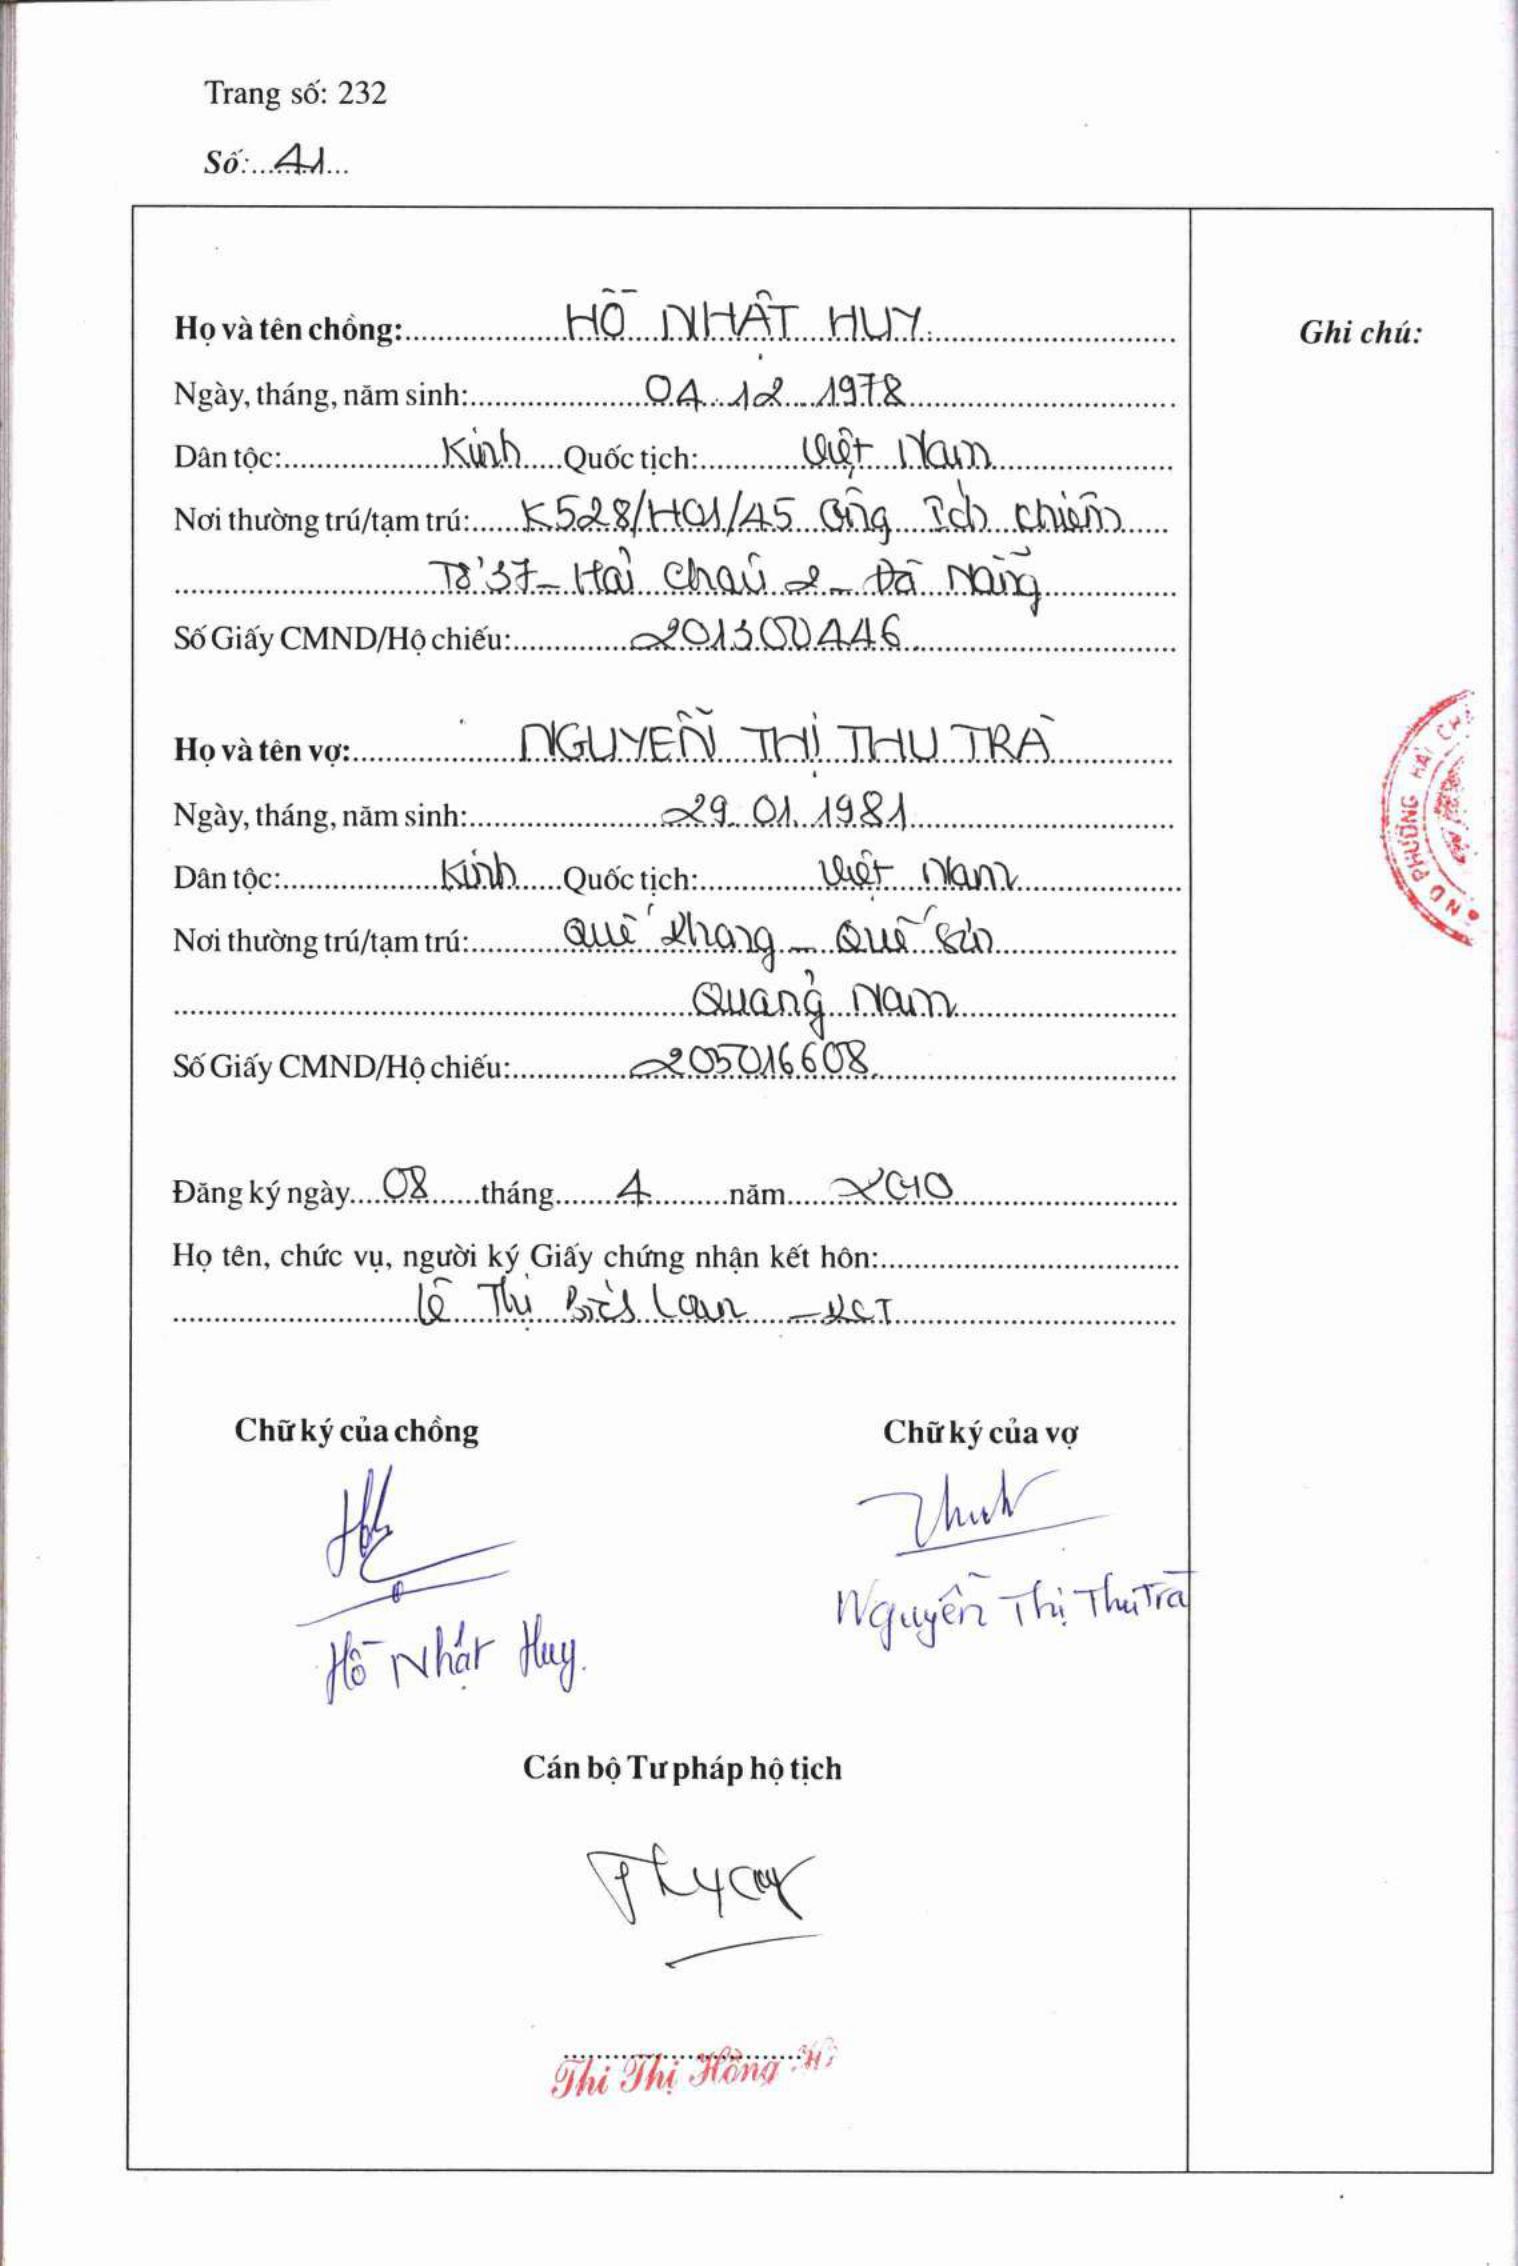 Trang số: 232
Số: 41
Họ và tên chồng: HỒ NHẬT HUY
Ghi chú:
Ngày, tháng, năm sinh: 04.12.1978
Dân tộc: Kinh Quốc tịch: Việt Nam
Nơi thường trú/tạm trú: K528/H01/45 Ông Ích Khiêm
Tổ 37 - Hải Châu 2 - Đà Nẵng
Số Giấy CMND/Hộ chiếu: 201300446
Họ và tên vợ: NGUYỄN THỊ THU TRÀ
Ngày, tháng, năm sinh: 29.01.1981
Dân tộc: Kinh Quốc tịch: Việt Nam
Nơi thường trú/tạm trú: Quế Phong - Quế Sơn
Quảng Nam
Số Giấy CMND/Hộ chiếu: 205016608
ND PHƯỜNG HẢI CH
Đăng ký ngày 08 tháng 4 năm 2010
Họ tên, chức vụ, người ký Giấy chứng nhận kết hôn:
Lê Thị Bích Loan - KCT
Chữ ký của chồng
Chữ ký của vợ
Nguyễn Thị Thu Trà
Hồ Nhật Huy.
Cán bộ Tư pháp hộ tịch
Thi Thị Hồng